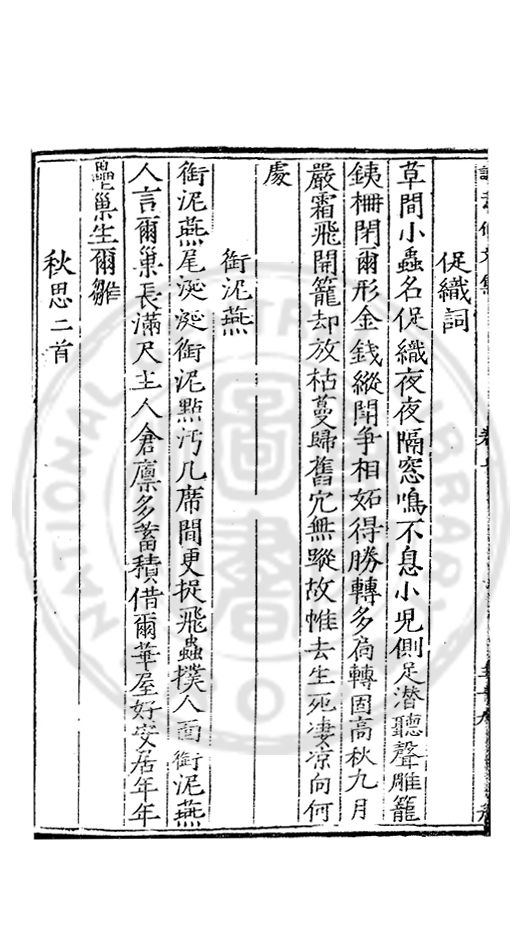 促織詞
草間小蟲名促織夜夜隔窓鳴不息小児側足潛聽聲雕籠
銕柵閉爾形金錢縱鬪争相妬得勝轉多扃轉固高秋九月
嚴霜飛開籠却放枯蔓歸舊穴無蹤故惟去生死凄凉向何
處
銜泥燕
銜泥燕尾涎涎銜泥點汚几席間更捉飛蟲撲人面銜泥燕
人言爾巢長滿尺主人倉廪多蓄積借爾華屋好安居年年
壘巢生爾雛
秋思二首